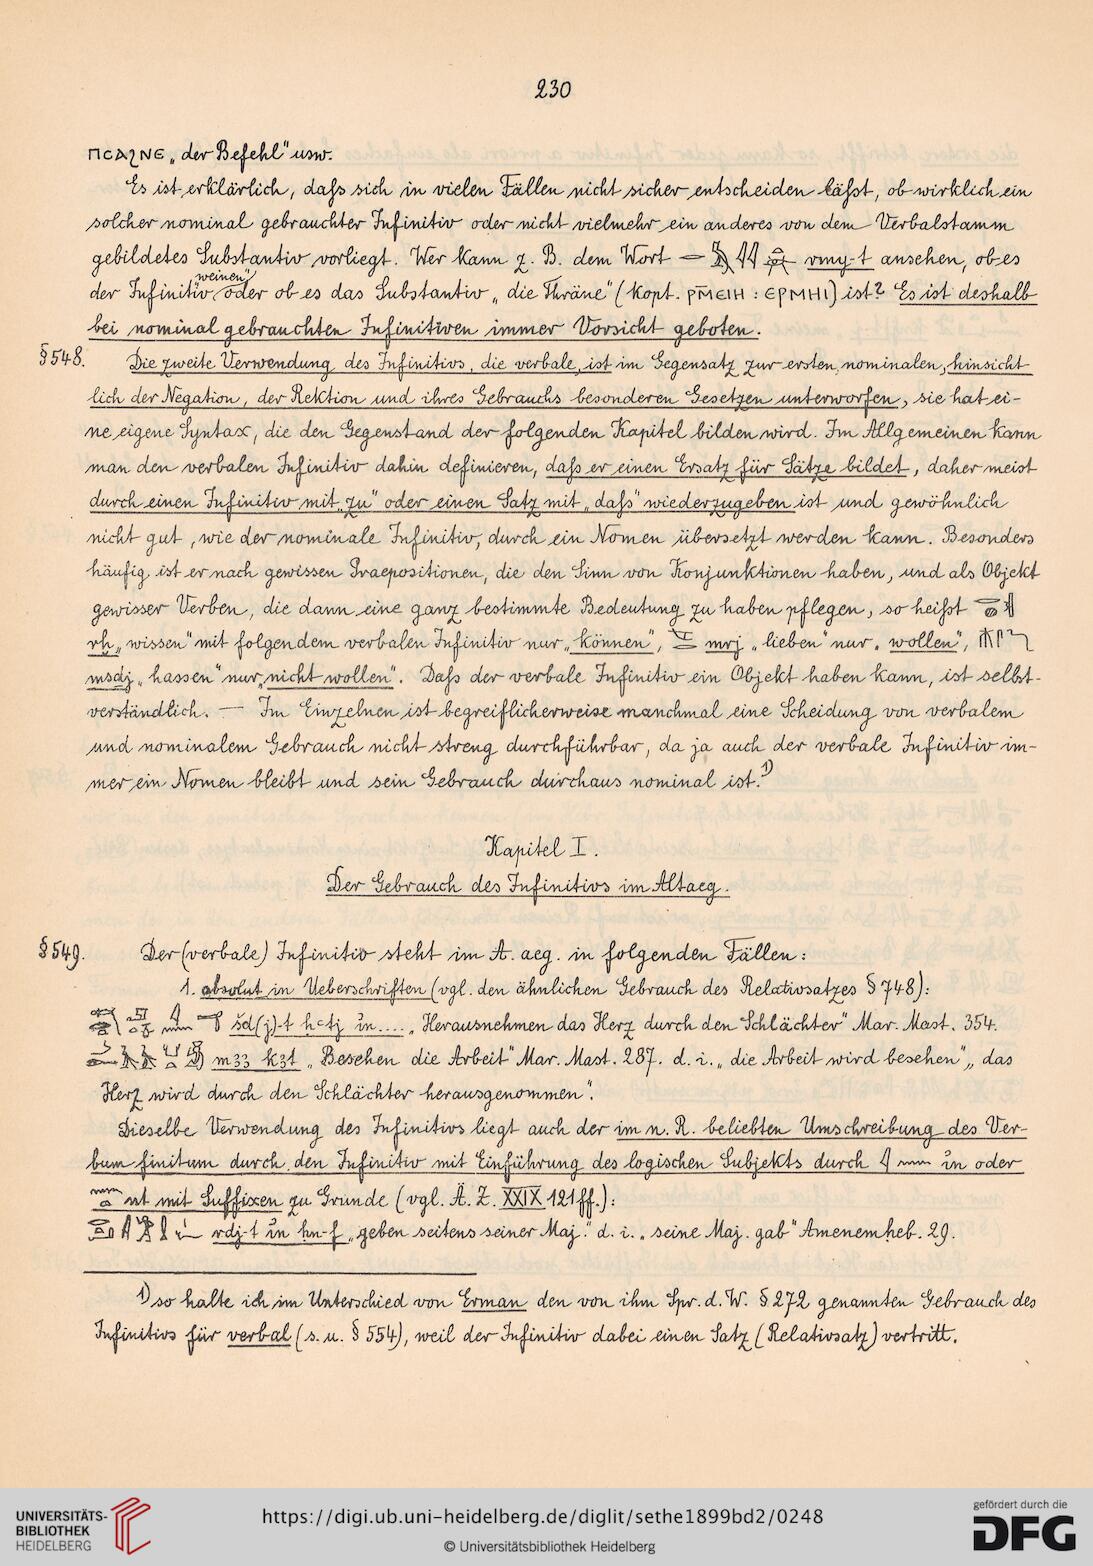 230
ⲡⲥⲁϩⲛⲉ „der Befehl“ usw.
Es ist erklärlich, dafs sich in vielen Fällen nicht sicher entscheiden läfst, ob wirklich ein
solcher nominal gebrauchter Infinitiv oder nicht vielmehr ein anderes von dem Verbalstamm
gebildetes Substantiv vorliegt. Wer kann z. B. dem Wort rmy-t ansehen, ob es
der Infinitiv „weinen“ oder ob es das Substantiv „die Thräne“ (kopt. ⲣⲙ̄ⲉⲓⲏ : ⲉⲣⲙⲏⲓ) ist? Es ist deshalb
bei nominal gebrauchten Infinitiven immer Vorsicht geboten.
§548. Die zweite Verwendung des Infinitivs, die verbale, ist im Gegensatz zur ersten, nominalen, hinsicht-
lich der Negation, der Rektion und ihres Gebrauchs besonderen Gesetzen unterworfen, sie hat ei-
ne eigene Syntax, die den Gegenstand der folgenden Kapitel bilden wird. Im Allgemeinen kann
man den verbalen Infinitiv dahin definieren, dafs er einen Ersatz für Sätze bildet, daher meist
durch einen Infinitiv mit „zu“ oder einen Satz mit „dafs“ wiederzugeben ist und gewöhnlich
nicht gut, wie der nominale Infinitiv, durch ein Nomen übersetzt werden kann. Besonders
häufig ist er nach gewissen Praepositionen, die den Sinn von Konjunktionen haben, und als Objekt
gewisser Verben, die dann eine ganz bestimmte Bedeutung zu haben pflegen, so heifst
rḫ „wissen“ mit folgendem verbalen Infinitiv nur „können“, mrj „lieben“ nur „wollen“,
msdj „hassen“ nur „nicht wollen“. Dafs der verbale Infinitiv ein Objekt haben kann, ist selbst-
verständlich. — Im Einzelnen ist begreiflicherweise manchmal eine Scheidung von verbalem
und nominalem Gebrauch nicht streng durchführbar, da ja auch der verbale Infinitiv im-
mer ein Nomen bleibt und sein Gebrauch durchaus nominal ist.1)
Kapitel I.
Der Gebrauch des Infinitivs im Altaeg.
§549. Der (verbale) Infinitiv steht im A. aeg. in folgenden Fällen:
1. absolut in Ueberschriften (vgl. den ähnlichen Gebrauch des Relativsatzes § 748):
šd(j)-t ḥꜥtj ỉn.... „Herausnehmen das Herz durch den Schlächter“ Mar. Mast. 354.
mꜣꜣ kꜣt „Besehen die Arbeit“ Mar. Mast. 287. d. i. „die Arbeit wird besehen“, „das
Herz wird durch den Schlächter herausgenommen“.
Dieselbe Verwendung des Infinitivs liegt auch der im n. R. beliebten Umschreibung des Ver-
bum finitum durch den Infinitiv mit Einführung des logischen Subjekts durch ỉn oder
nt mit Suffixen zu Grunde (vgl. Ä. Z. XXIX 121 ff.):
rdj-t ỉn ḥn-f „geben seitens seiner Maj.“ d. i. „seine Maj. gab“ Amenemheb. 29.
1) so halte ich im Unterschied von Erman den von ihm Spr. d. W. § 272 genannten Gebrauch des
Infinitivs für verbal (s. u. § 554), weil der Infinitiv dabei einen Satz (Relativsatz) vertritt.
UNIVERSITÄTS-
BIBLIOTHEK
HEIDELBERG
https://digi.ub.uni-heidelberg.de/diglit/sethe1899bd2/0248
© Universitätsbibliothek Heidelberg
gefördert durch die
DFG